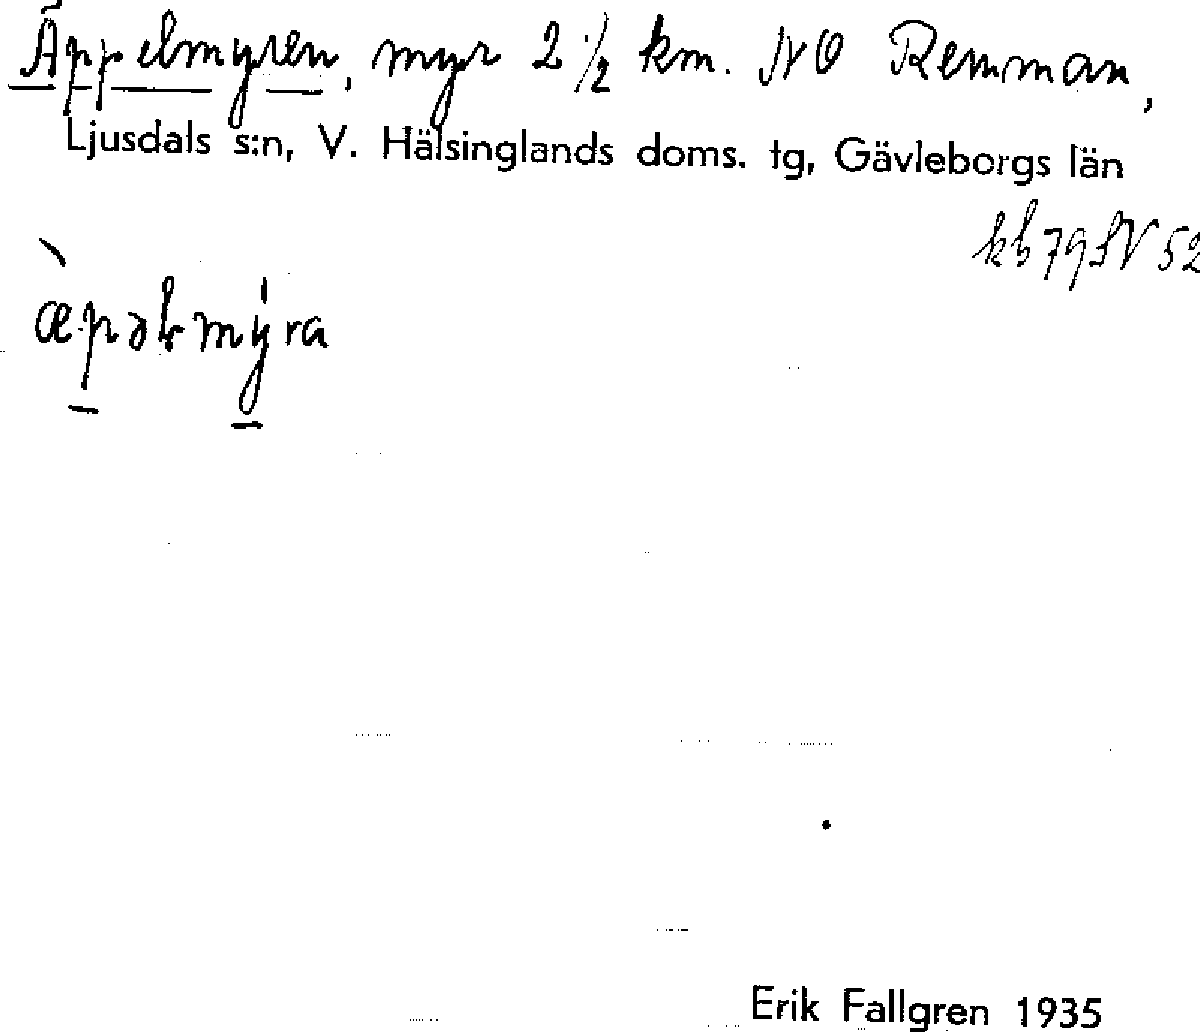 Äppelmyren, myr 2 1/2 km. NO Remman,
Ljusdals s:n, V. Hälsinglands doms. tg, Gävleborgs län
kb 79 SV 52
æ̀pəlmýra
Erik Fallgren 1935